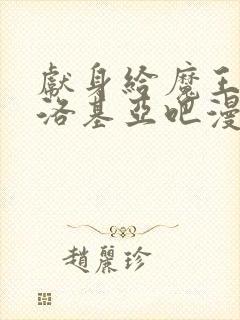 獻身給魔王
洛基亞吧漫
趙麗珍